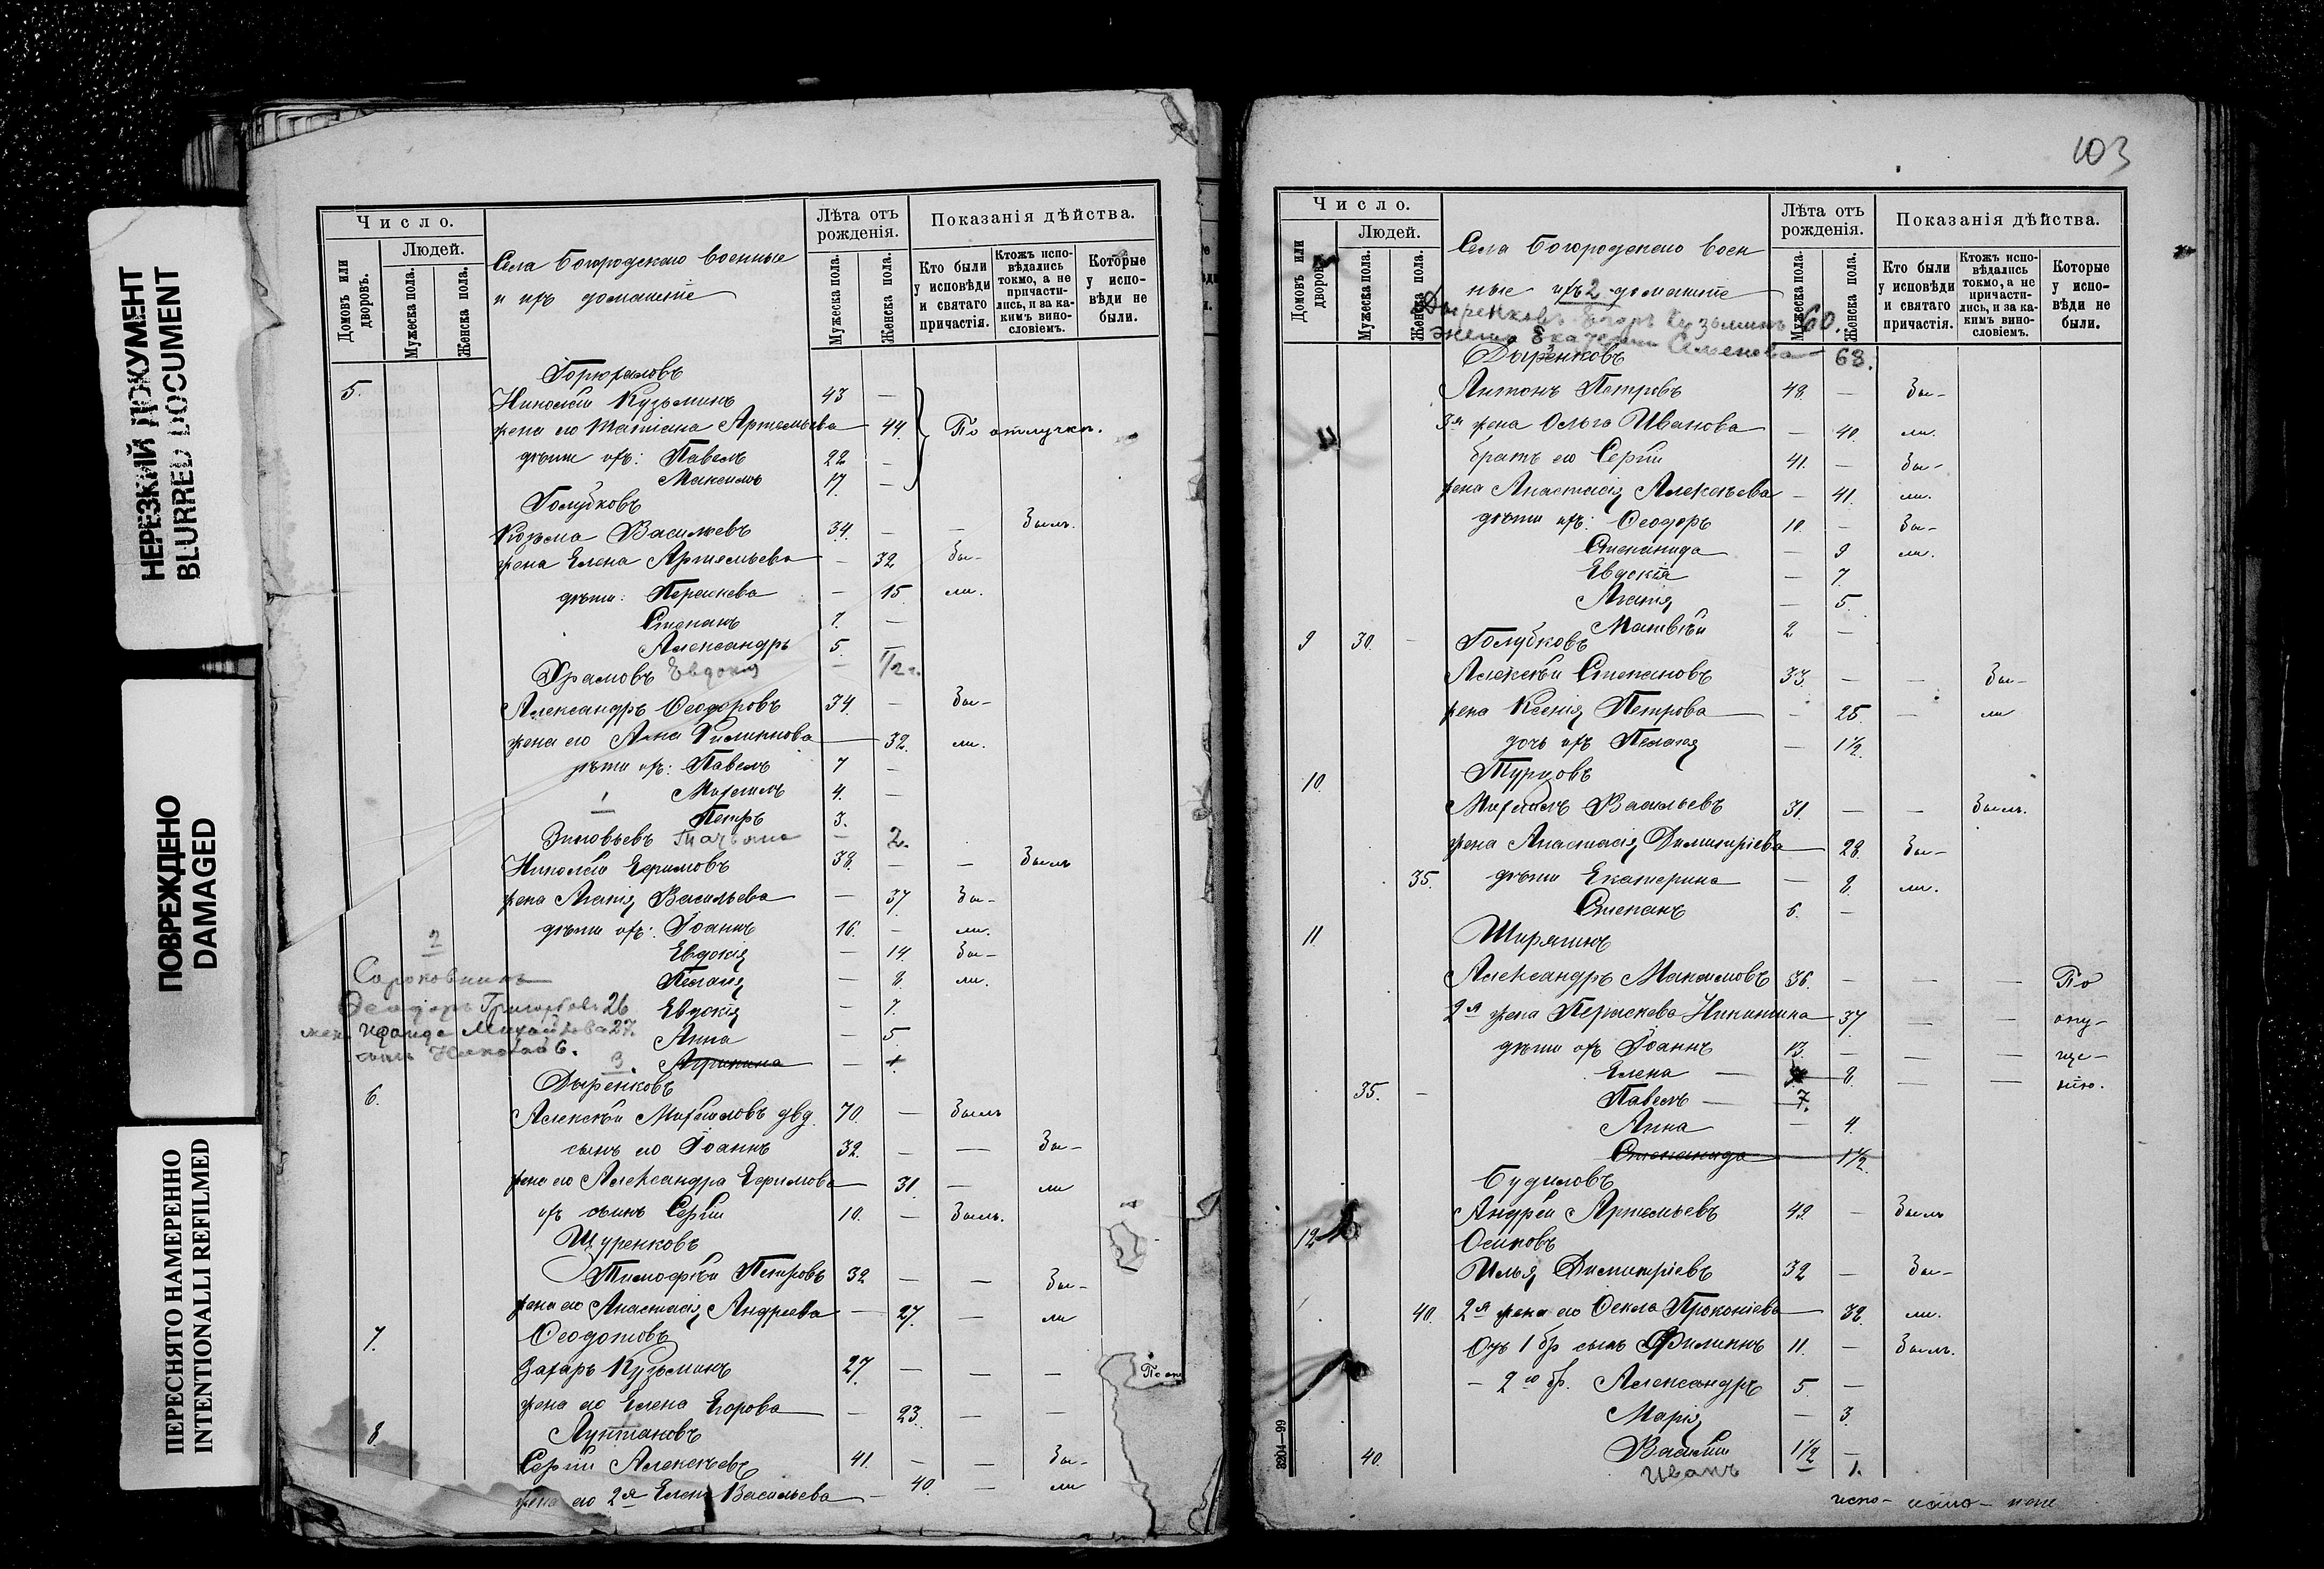 НЕРЕЗКИЙ ДОКУМЕНТ
BLURRED DOCUMENT
ПОВРЕЖДЕНО
DAMAGED
ПЕРЕСНЯТО НАМЕРЕННО
INTENTIONALLI REFILMED
Число.
Людей.
Домовъ или дворовъ.
Мужеска пола.
Женска пола.
Села Богородскаго военные
и ихъ домашніе
Лѣта отъ рожденія.
Мужеска пола.
Женска пола.
Показанія дѣйства.
Кто были у исповѣди и святаго причастія.
Ктожъ исповѣдались токмо, а не причастились, и за какимъ винословіемъ.
Которые у исповѣди не были.
5.
Николай Кузьминъ 43 —
жена его Татіана Артемьева — 44. По отлучкѣ.
дѣти ихъ: Павелъ 22 —
Максимъ 17. —
Голубковъ
Козьма Васильевъ 34. — — Былъ.
жена Елена Артемьева — 32 Бы-
дѣти: Параскева — 15 ли.
Степанъ 7. —
Александръ 5. —
Храмовъ Евдокія — 1/2 г.
Александръ Ѳеодоровъ 34. — Бы-
жена его Анна Филиппова — 32. ли.
дѣти ихъ: Павелъ 7 —
Михаилъ 4. —
1 Петръ 3.
Зиновьевъ Татьяна — 2.
Николай Ефимовъ 38. — — Былъ
жена Агаѳія Васильева — 37 Бы-
дѣти ихъ: Іоаннъ 16. — ли.
2 Евдокія — 14. Бы-
Сороковнинъ Пелагія — 8. ли.
Ѳеодоръ Григорьевъ 26 Евдокія — 7.
Михайлова 27. Анна — 5.
сынъ Николай 6.
3. Агрипина — 1.
6. Дыренковъ
Алексѣй Михайловъ вдв. 70. — Былъ
сынъ его Іоаннъ 32. — — Бы-
жена его Александра Ефимова 31. — ли
ихъ сынъ Сергій 10. — Былъ.
Щуренковъ
Тимофѣй Петровъ 32 — — Бы-
жена его Анастасія Андреева — 27. — ли
7. Ѳеодотовъ
Захаръ Кузьминъ 27 — — — По от
жена его Елена Егорова — 23. — —
8 Луктановъ
Сергій Алексѣевъ 41. — — Бы-
жена его 2я Елена Васильева — 40. — ли
103
Число.
Людей.
Домовъ или дворовъ.
Мужеска пола.
Женска пола.
Села Богородскаго воен
ные ихъ домашніе
2
Лѣта отъ рожденія.
Мужеска пола.
Женска пола.
Показанія дѣйства.
Кто были у исповѣди и святаго причастія.
Ктожъ исповѣдались токмо, а не причастились, и за какимъ винословіемъ.
Которые у исповѣди не были.
Дыренковъ Егоръ Кузьминъ 60.
жена Екатерина Семенова — 68.
Дыренковъ
Антонъ Петровъ 48. — Бы-
3я жена Ольга Иванова — 40. ли.
братъ его Сергій 41. — Бы-
жена Анастасія Алексѣева — 41. ли.
дѣти ихъ: Ѳеодоръ 10. — Бы-
Степанида — 9 ли.
Евдокія — 7.
Агаѳія — 5.
Матвѣй 2 —
9 30. — Голубковъ
Алексѣй Степановъ 33. — — Бы-
жена Ксенія Петрова — 25. — ли
дочь ихъ Пелагія — 1 1/2.
10. Турцовъ
Михаилъ Васильевъ 31. — — Былъ.
жена Анастасія Димитріева — 28. Бы-
35. дѣти Екатерина — 8. ли.
Степанъ 6. —
11. Ширягинъ
Александръ Максимовъ 36. — — — По
2я жена Параскева Никитина 37 — — опу-
дѣти ихъ Іоаннъ 13. — — — ще-
Елена — 8. — — нію.
35. — Павелъ — 7.
Анна — 4.
Степанида — 1 1/2.
Будиловъ
Андрей Артемьевъ 49. — Былъ
12 Осиповъ
Илья Димитріевъ 32 — Бы-
40. 2я жена его Ѳекла Прокопіева — 38. ли.
Отъ 1 бр сынъ Филиппъ 11. — Былъ.
— 2го бр. Александръ 5. —
Марія — 3.
40. Василій 1 1/2 —
Иванъ 1.
3204—99